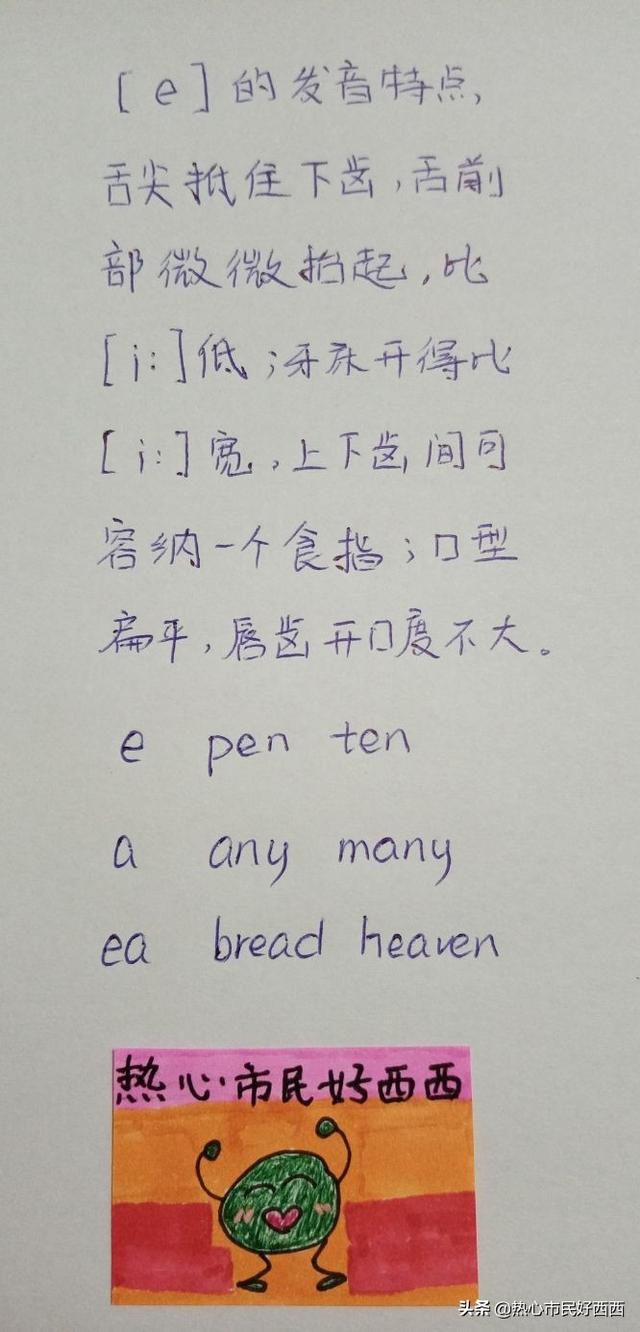 [e]的发音特点,
舌尖抵住下齿,舌前
部微微抬起,比
[i:]低;牙床开得比
[i:]宽,上下齿间可
容纳一个食指;口型
扁平,唇齿开口度不大。
e pen ten
a any many
ea bread heaven
热心市民好西西
头条 @热心市民好西西